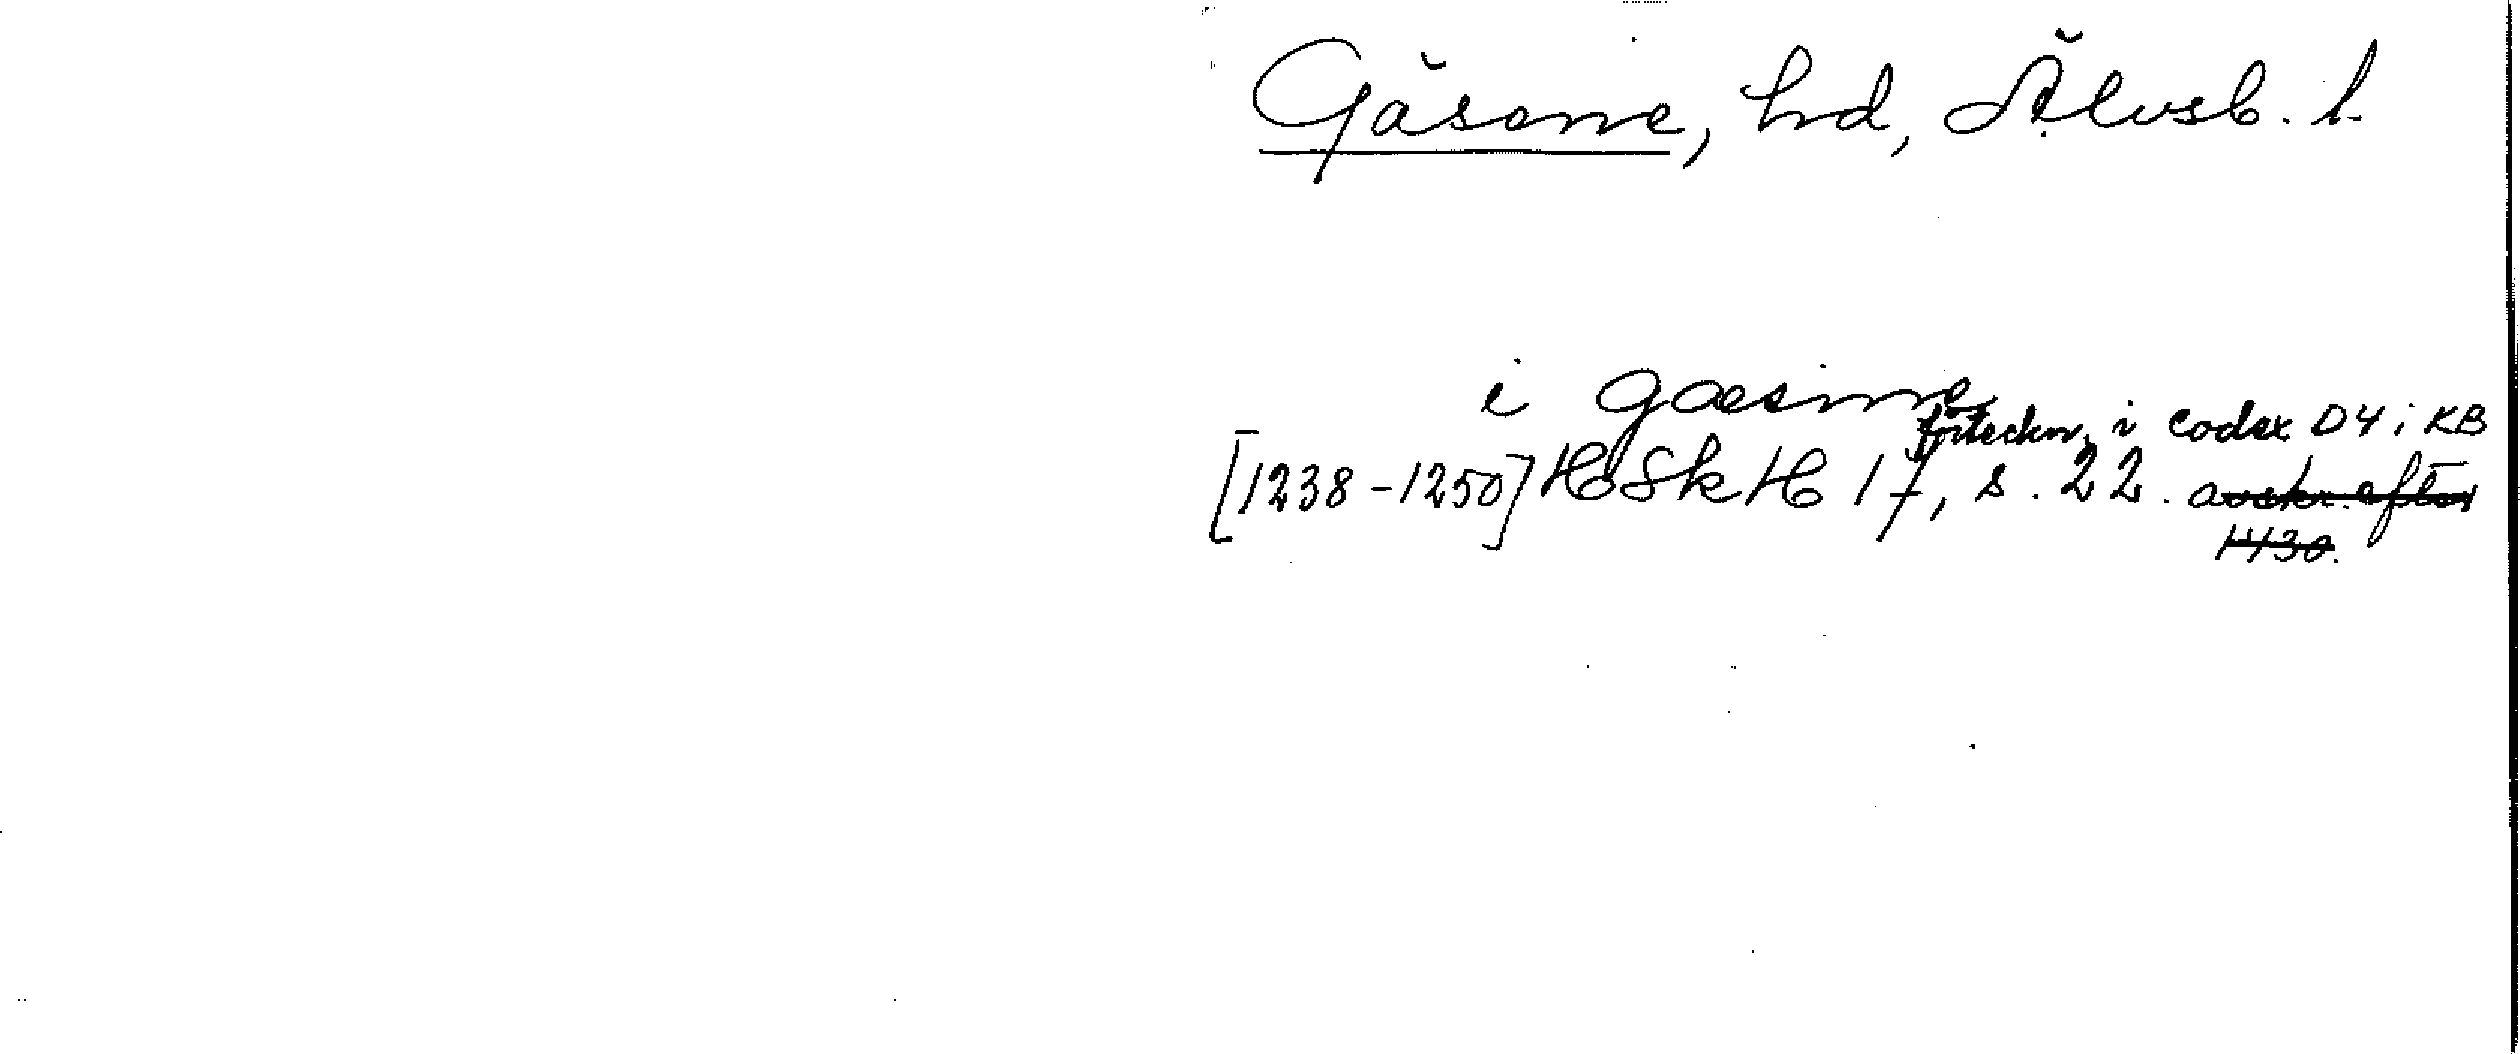 Gäsene, hd, Älvsb. l.
i gæsine
förteckn. i codex D4 i KB
[1238-1250] HSkH 17, s. 22. avskr. efter
1430.